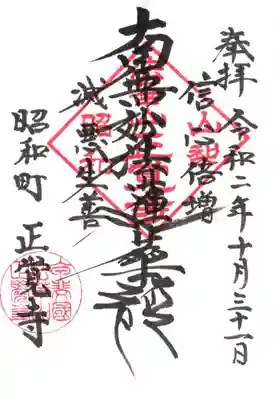 奉拝 令和二年十月三十一日
信心倍増
南無妙法蓮華経
滅悪生善
昭和町 正覚寺